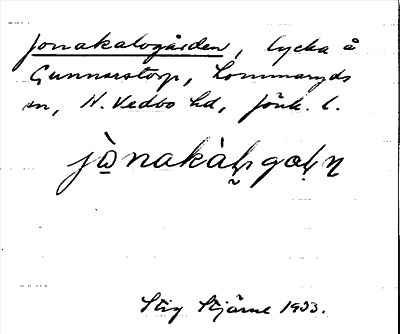 Jonakalvgården, lycka å
Gunnarstorp, Lommaryds
sn, N. Vedbo hd, Jönk. l.
Stig Stjärne 1933.